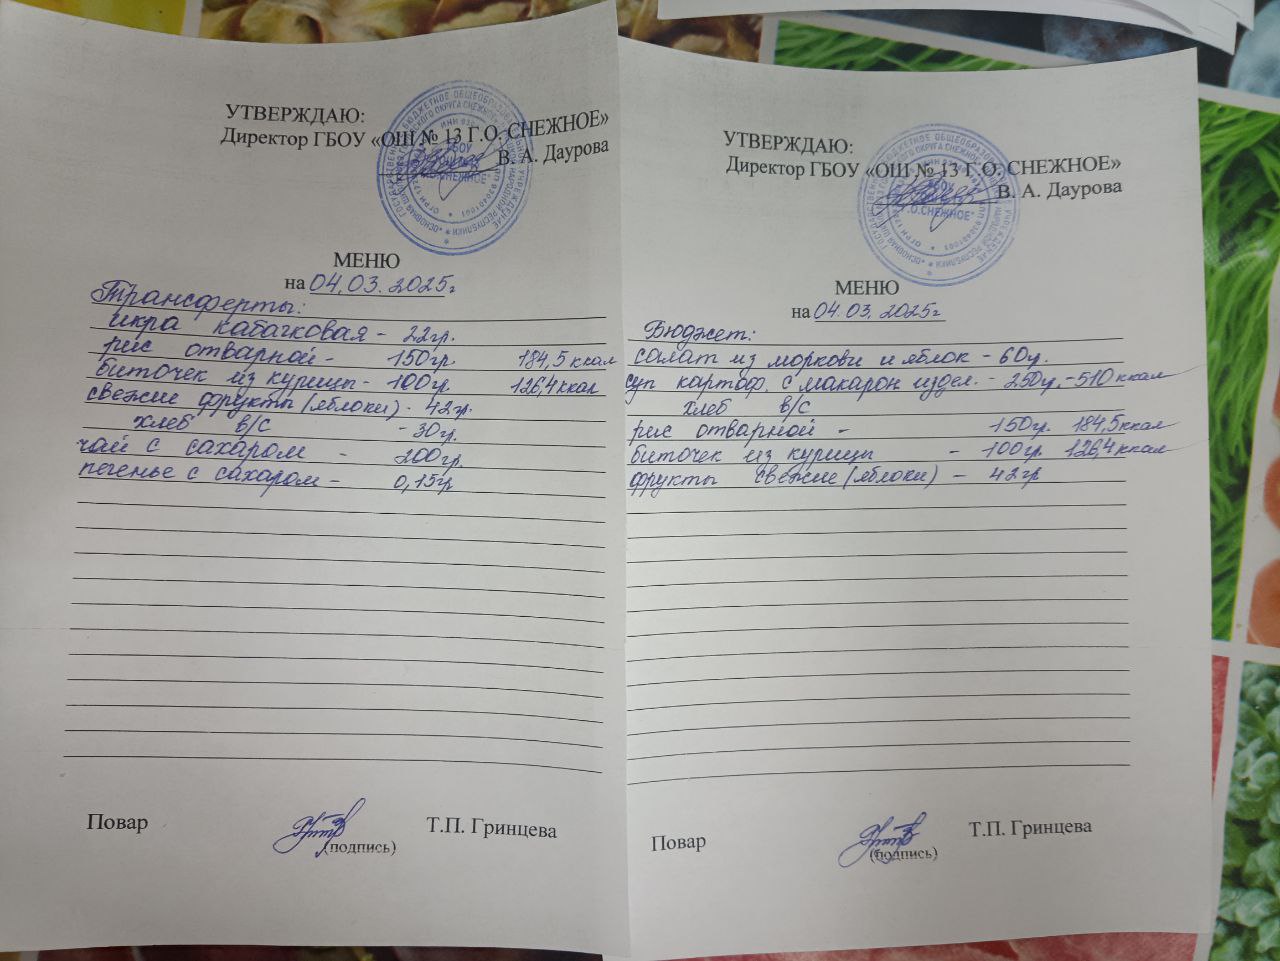 УТВЕРЖДАЮ:
Директор ГБОУ «ОШ № 13 Г.О. СНЕЖНОЕ»
В. А. Даурова
МЕНЮ
на 04.03.2025г
Трансферты:
икра кабачковая - 22гр.
рис отварной - 150гр. 184,5 ккал
биточек из курицы - 100гр 126,4 ккал
свежие фрукты (яблоки) - 42гр.
хлеб в/с - 30гр.
чай с сахаром - 200гр.
печенье с сахаром - 0,15гр
Повар Т.П. Гринцева
(подпись)
УТВЕРЖДАЮ:
Директор ГБОУ «ОШ № 13 Г.О. СНЕЖНОЕ»
В. А. Даурова
МЕНЮ
на 04.03.2025г
Бюджет:
салат из моркови и яблок - 60гр.
суп картоф. с макарон издел. - 250гр. - 510 ккал
хлеб в/с
рис отварной - 150гр. 184,5 ккал
биточек из курицы - 100гр. 126,4 ккал
фрукты свежие (яблоки) - 42гр
Повар Т.П. Гринцева
(подпись)